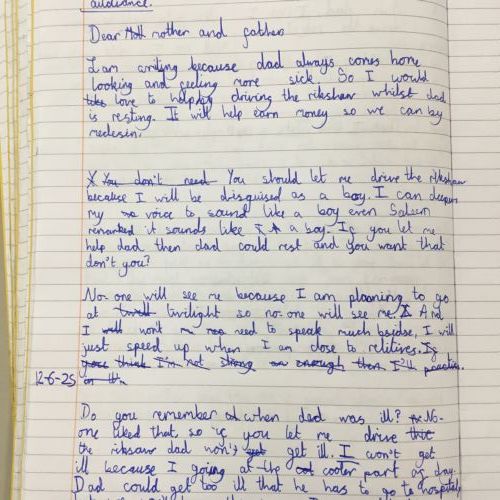 audience.
Dear Moth mother and fathers
I am writing because dad always comes home
looking and feeling more sick. So I would
like love to helpby driving the rikshaw whilst dad
is resting. It will help earn money so we can by
medesin.
X You don't need You should let me drive the rikshaw
because I will be disguised as a boy. I can deepen
my voice to sound like a boy even Saleem
remarked it sounds like I A a boy. If you let me
help dad then dad could rest and you want that
don't you?
No one will see me because I am planning to go
at twell twilight so no one will see me. I And
I will won't need to speak much bsidse, I will
just speed up when I am close to relitives. If
you think I'm not strong enough then I'll practise
on the
12-6-25
Do you remember when dad was ill? No-
one liked that, so if you let me drive this
the riksaw dad won't get get ill. I won't get
ill because I going at the col cooler part of day.
Dad could get too ill that he has to go to hospital